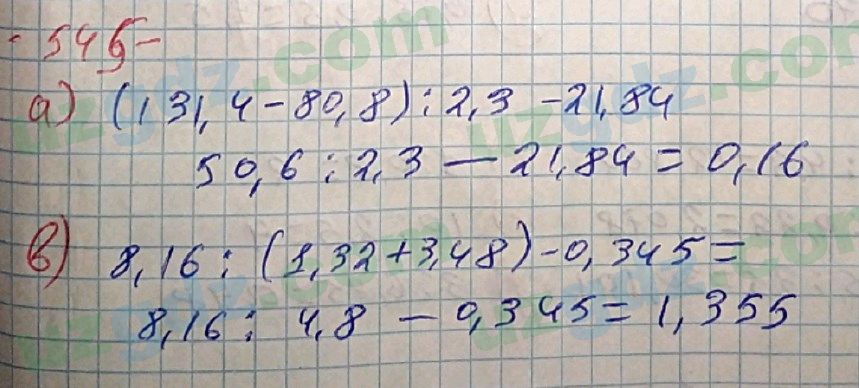 545
a) (131,4-80,8):2,3-21,84
50,6:2,3-21,84=0,16
в) 8,16:(1,32+3,48)-0,345=
8,16:4,8-0,345=1,355